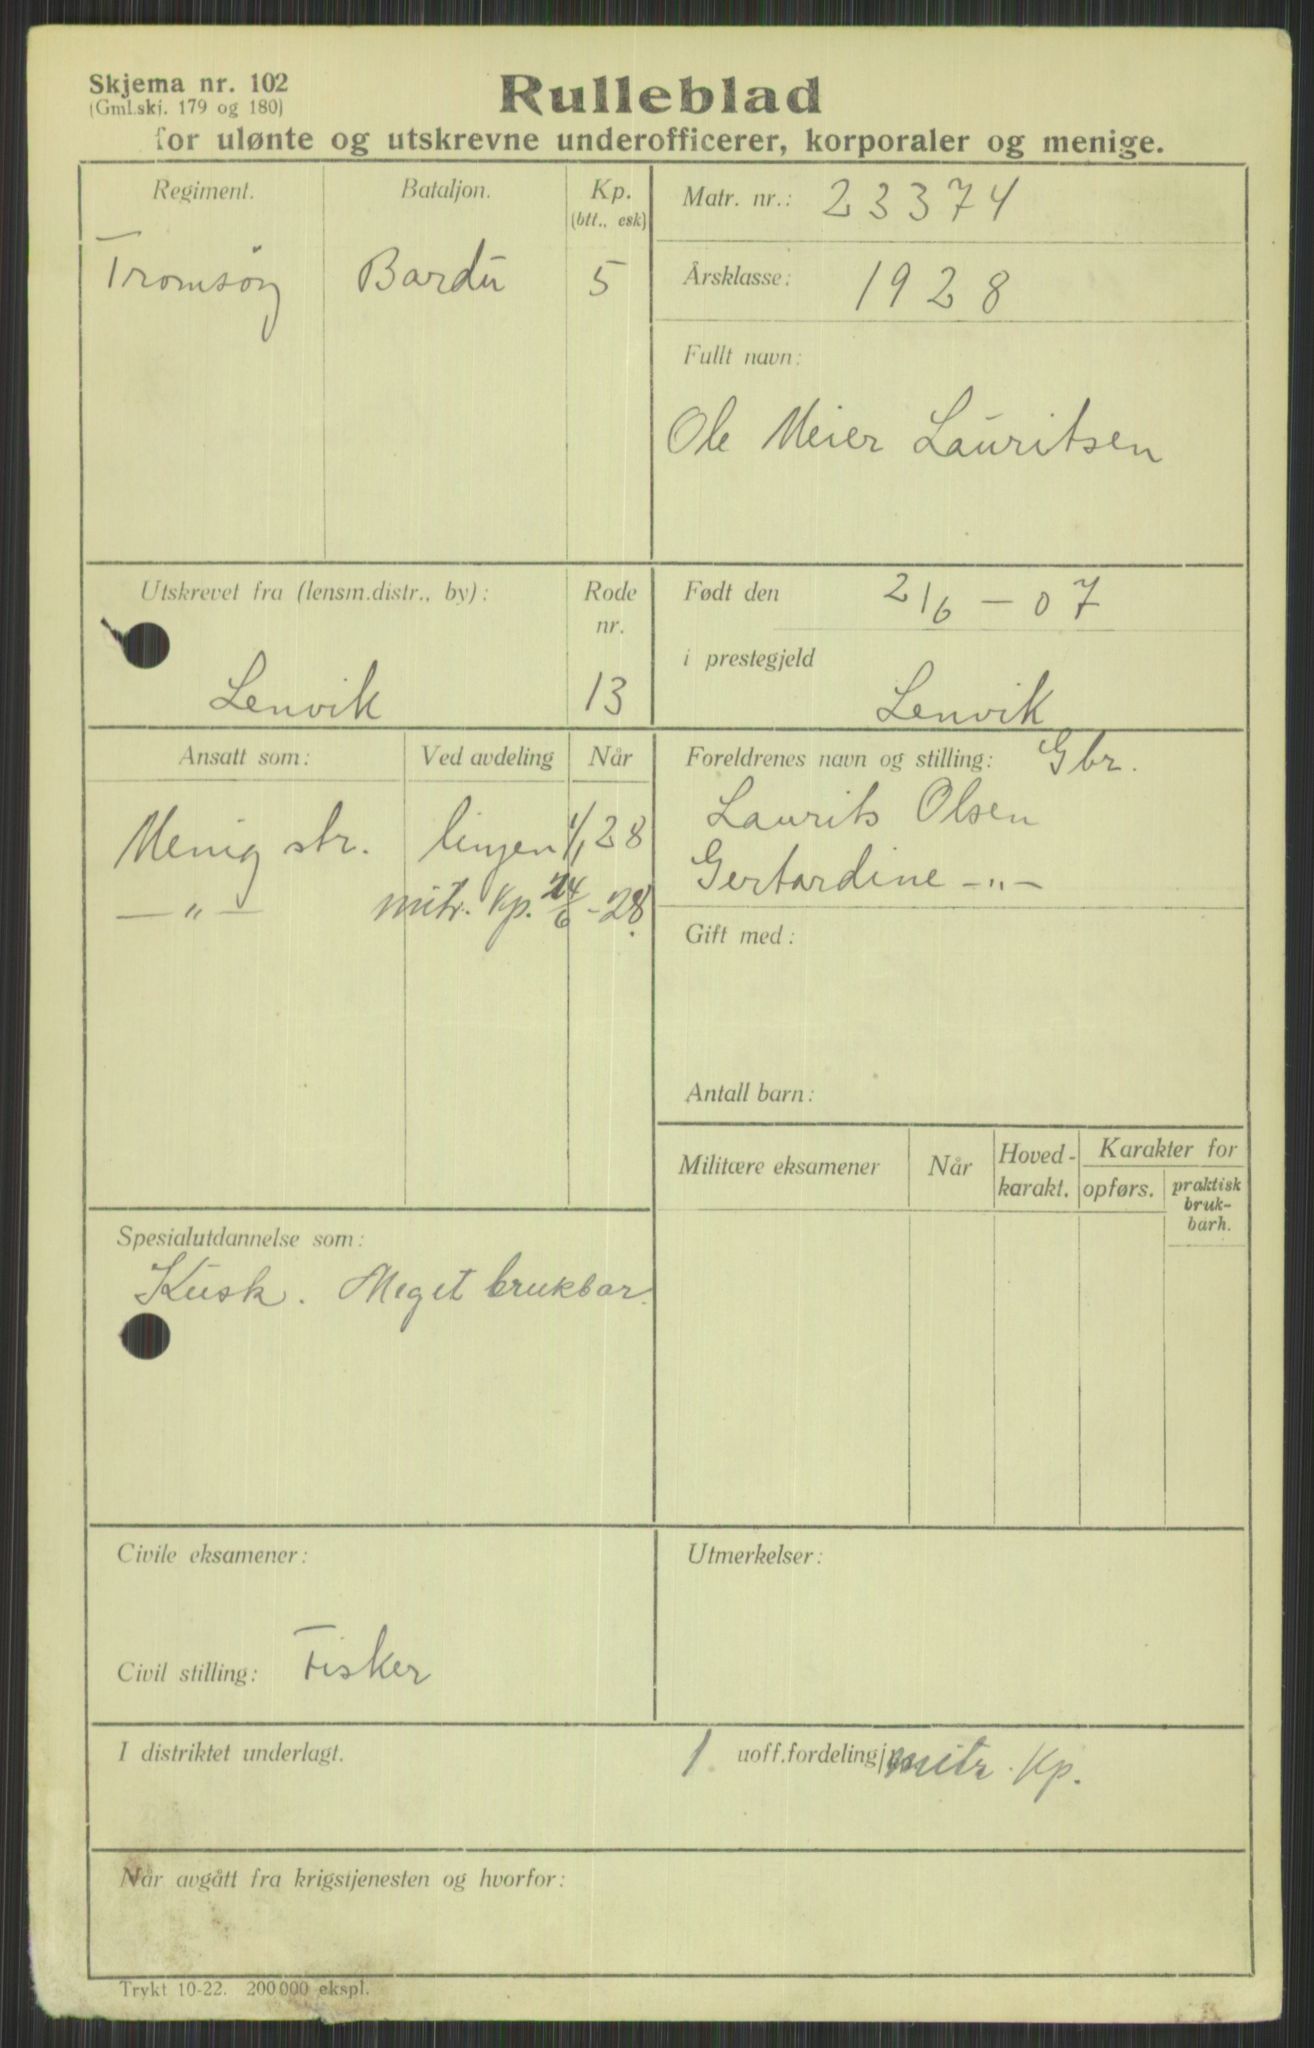 Skjema nr. 102
(Gml.skj. 179 og 180)
Rulleblad
for ulønte og utskrevne underofficerer, korporaler og menige.
Regiment. Bataljon. Kp.
(btt., esk)
Tromsøy Bardu 5
Matr. nr.: 23374
Årsklasse: 1928
Fullt navn:
Ole Meier Lauritsen
Utskrevet fra (lensm.distr., by): Rode
nr.
Lenvik 13
Født den 2/6 - 07
i prestegjeld
Lenvik
Ansatt som: Ved avdeling Når
Menig str. linjen 1/1 28
—„— mitr. Kp. 24/6 - 28.
Foreldrenes navn og stilling: Gbr.
Laurits Olsen
Gertardine —„—
Gift med:
Antall barn:
Militære eksamener Når Hoved-
karakt. Karakter for
opførs. praktisk
bruk-
barh.
Spesialutdannelse som:
Kusk. Meget brukbar.
Civile eksamener:
Civil stilling: Fisker
Utmerkelser:
I distriktet underlagt. 1. uoff.fordeling mitr. Kp.
Når avgått fra krigstjenesten og hvorfor:
Trykt 10-22. 200 000 ekspl.